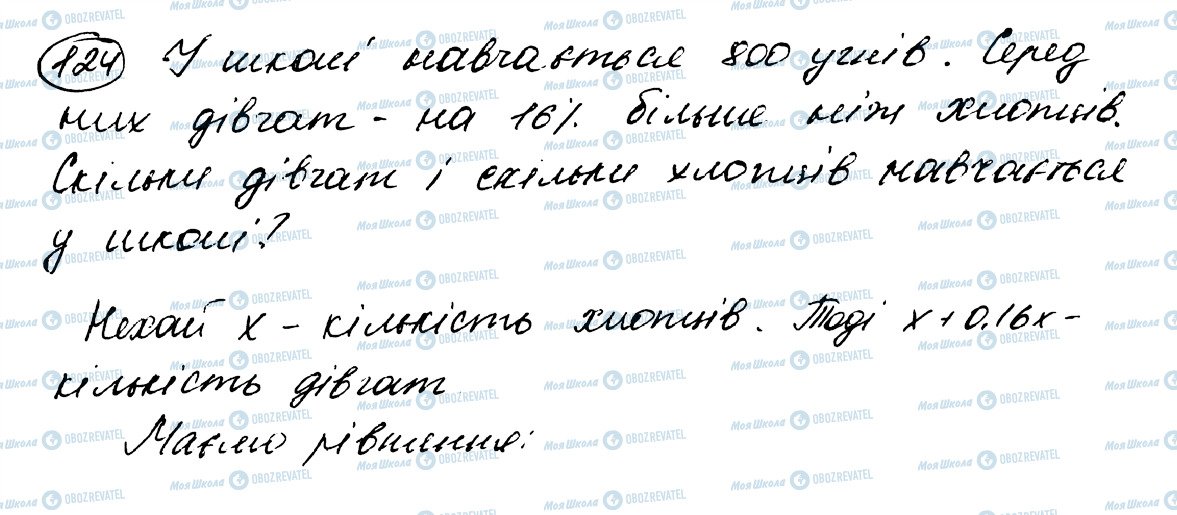 124 У школі навчається 800 учнів. Серед
них дівчат - на 16% більше ніж хлопців.
Скільки дівчат і скільки хлопців навчається
у школі?
Нехай x - кількість хлопців. Тоді x+0.16x-
кількість дівчат
Маємо рівняння: